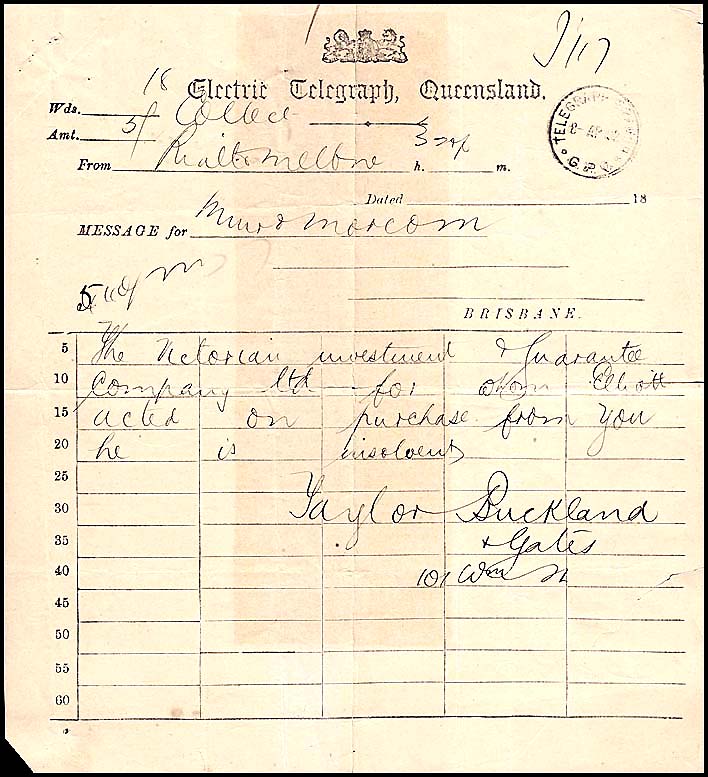 Electric Telegraph, Queensland.
Wds. 18 Collect
Amt. 5/
From Rialto Melbne h. m.
Dated 18
MESSAGE for Muir & Morcom
BRISBANE.
TELEGRAPH
G.P.O.
5 The Victorian investment & Guarantee
10 Company Ltd for whom Elliott
15 acted on purchase from you
20 he is insolvent
25
30 Taylor Buckland
35 & Gates
40 101 Wm St
45
50
55
60